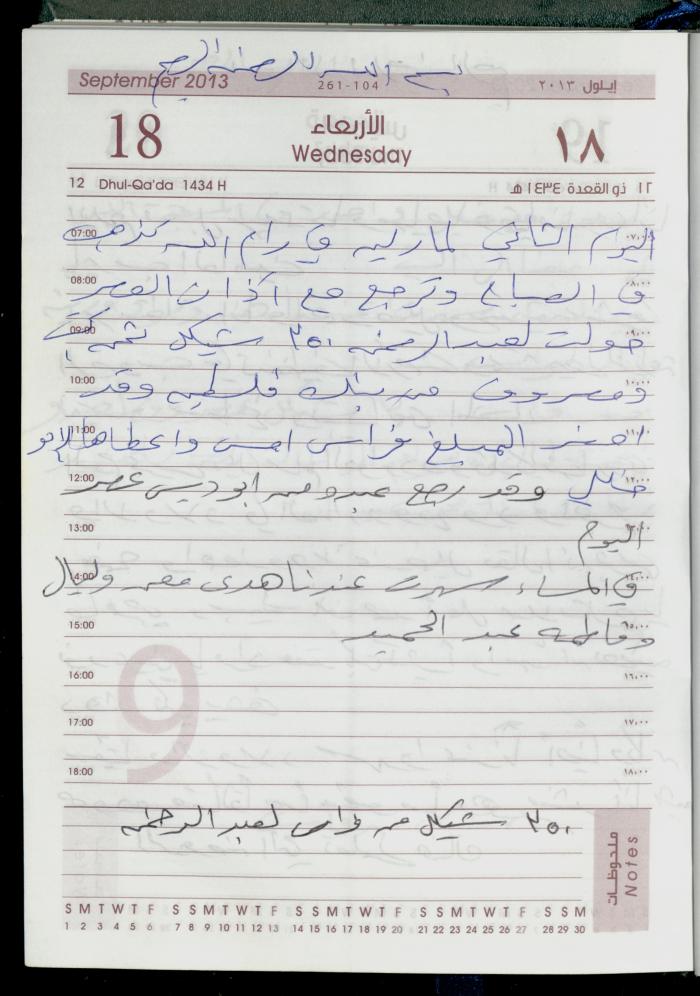 بسم الله الرحمن الرحيم
September 2013 261-104 إيلول ٢٠١٣
18 الأربعاء ١٨
Wednesday
12 Dhul-Qa'da 1434 H ١٢ ذو القعدة ١٤٣٤ هـ
07:00 اليوم الثاني لمارليه في رام الله تذهب ٠٧,٠٠
08:00 في الصباح وترجع مع اذان العصر ٠٨,٠٠
09:00 حولت لعبد الرحمن ٣٥٠ شيكل ٠٩,٠٠
10:00 ومصروف من بنك فلسطين وقد ١٠,٠٠
11:00 المبلغ فراس امس واعطاها لابو ١١,٠٠
12:00 خليل وقد رجع عبدو من ابوديس عصر ١٢,٠٠
13:00 اليوم
14:00 في المساء سهرت عندنا هدى معن وليال ١٤,٠٠
15:00 وفاطمه عبد الحميد ١٥,٠٠
16:00 ١٦,٠٠
17:00 ١٧,٠٠
18:00 ١٨,٠٠
9
٣٥٠ شيكل من فراس لعبد الرحمن
ملحوظات Notes
S M T W T F S S M T W T F S S M T W T F S S M T W T F S S M
1 2 3 4 5 6 7 8 9 10 11 12 13 14 15 16 17 18 19 20 21 22 23 24 25 26 27 28 29 30